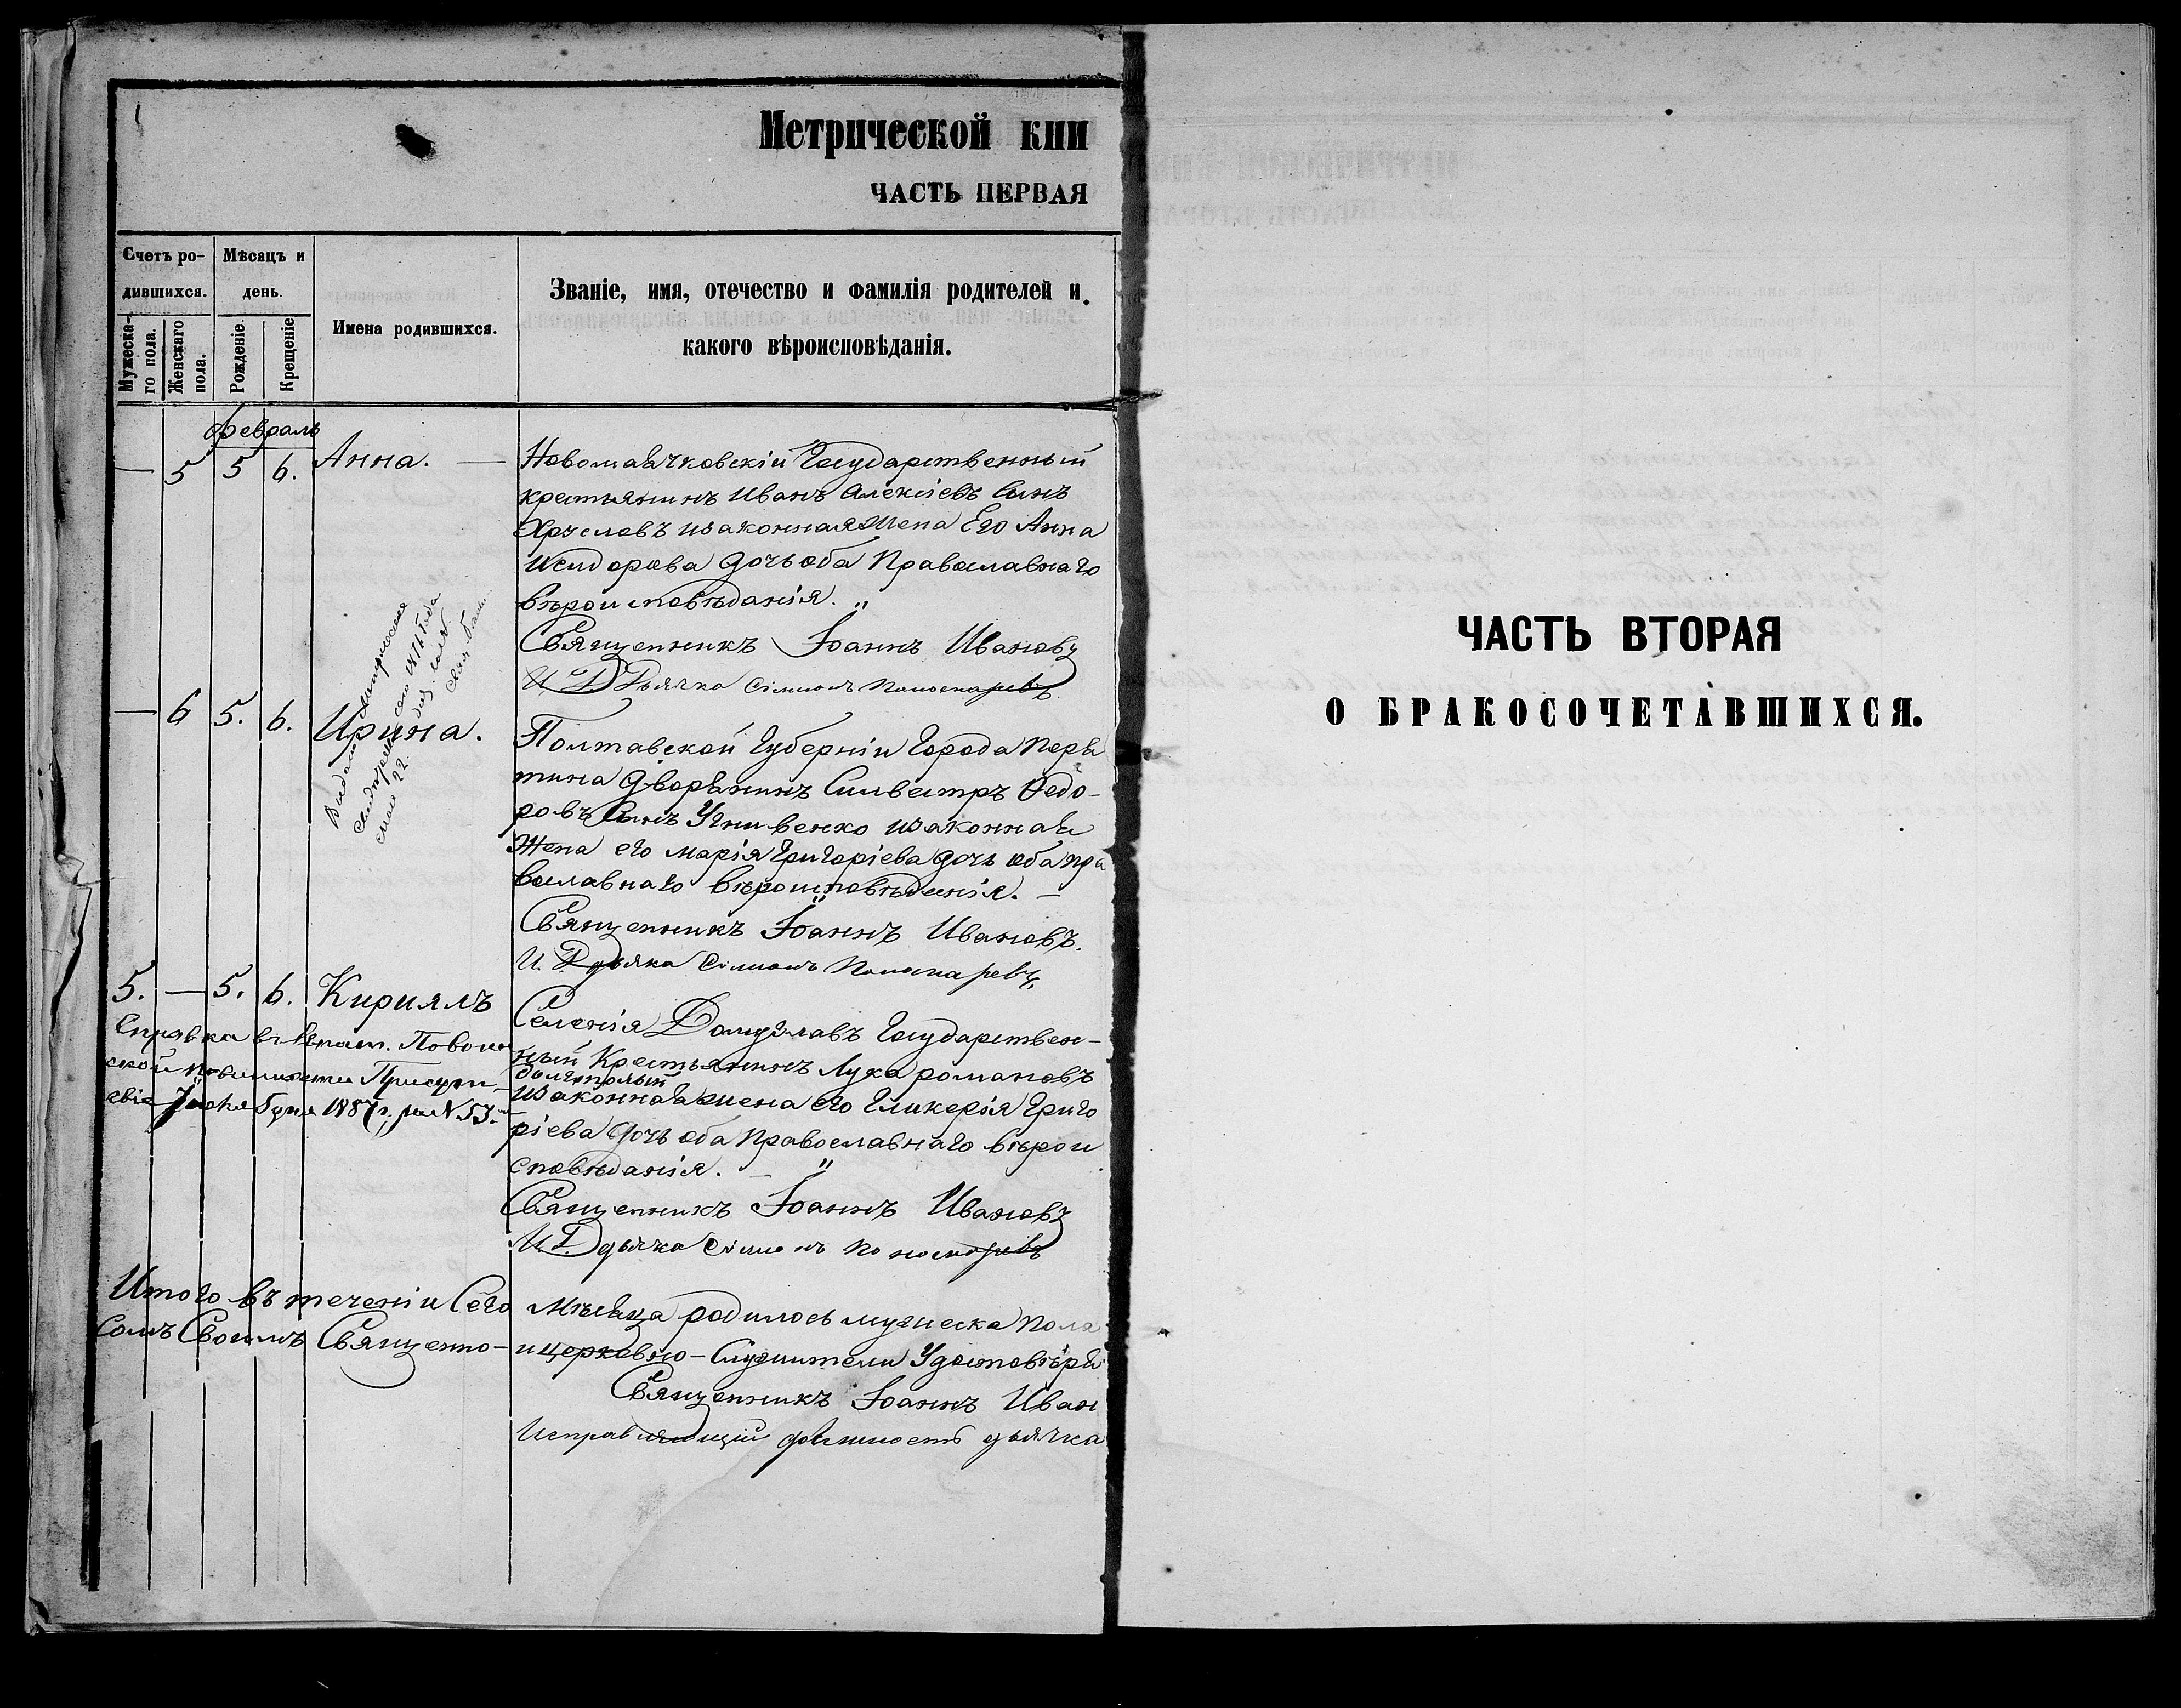 Метрической кни
ЧАСТЬ ПЕРВАЯ
Счетъ ро-
дившихся.
Мужеска-
го пола.
Женскаго
пола.
Мѣсяцъ и
день.
Рожденіе.
Крещеніе.
Имена родившихся.
Званіе, имя, отечество и фамилія родителей и
какого вѣроисповѣданія.
Февраль
— 5 5 6. Анна. —
Новомаячковскій Государственный
крестьянинъ Иванъ Алексіевъ Сынъ
изаконная жена Его Анна
Исидорова дочь оба Православнаго
вѣроисповѣданія. „
Священникъ Іоаннъ Ивановъ
И Д Дьячка Сімеонъ Пономаревъ
— 6 5. 6. Ирина.
Полтавской Губерніи Города Пиря
тина Дворянинъ Сильвестръ Ѳедо-
ровъ Сынъ изаконная
Жена его Марія Григоріева дочь оба пра
вославнаго вѣроисповѣданія. —
Священникъ Іоаннъ Ивановъ.
И. Д дьяка Сімеонъ Пономаревъ
свидѣтельство 1874 Года
5. — 5. 6. Кириллъ
Справка въ
Присут-
Іюня 1887 г. за № 53.
Селенія Государствен-
ный Крестьянинъ Лука Романовъ
изаконная жена его Гликерія Григо
ріева дочь оба Православнаго вѣрои
сповѣданія. — „
Священникъ Іоаннъ Ивановъ
И. Д дьячка Сімеонъ Пономаревъ
Итого въ теченіи Сего Мѣсяца родилось мужеска пола
Своимъ Священно- и церковно-Служители Удостовѣря
Священникъ Іоаннъ Иван
Исправляющій должность дьячка
ЧАСТЬ ВТОРАЯ
О БРАКОСОЧЕТАВШИХСЯ.